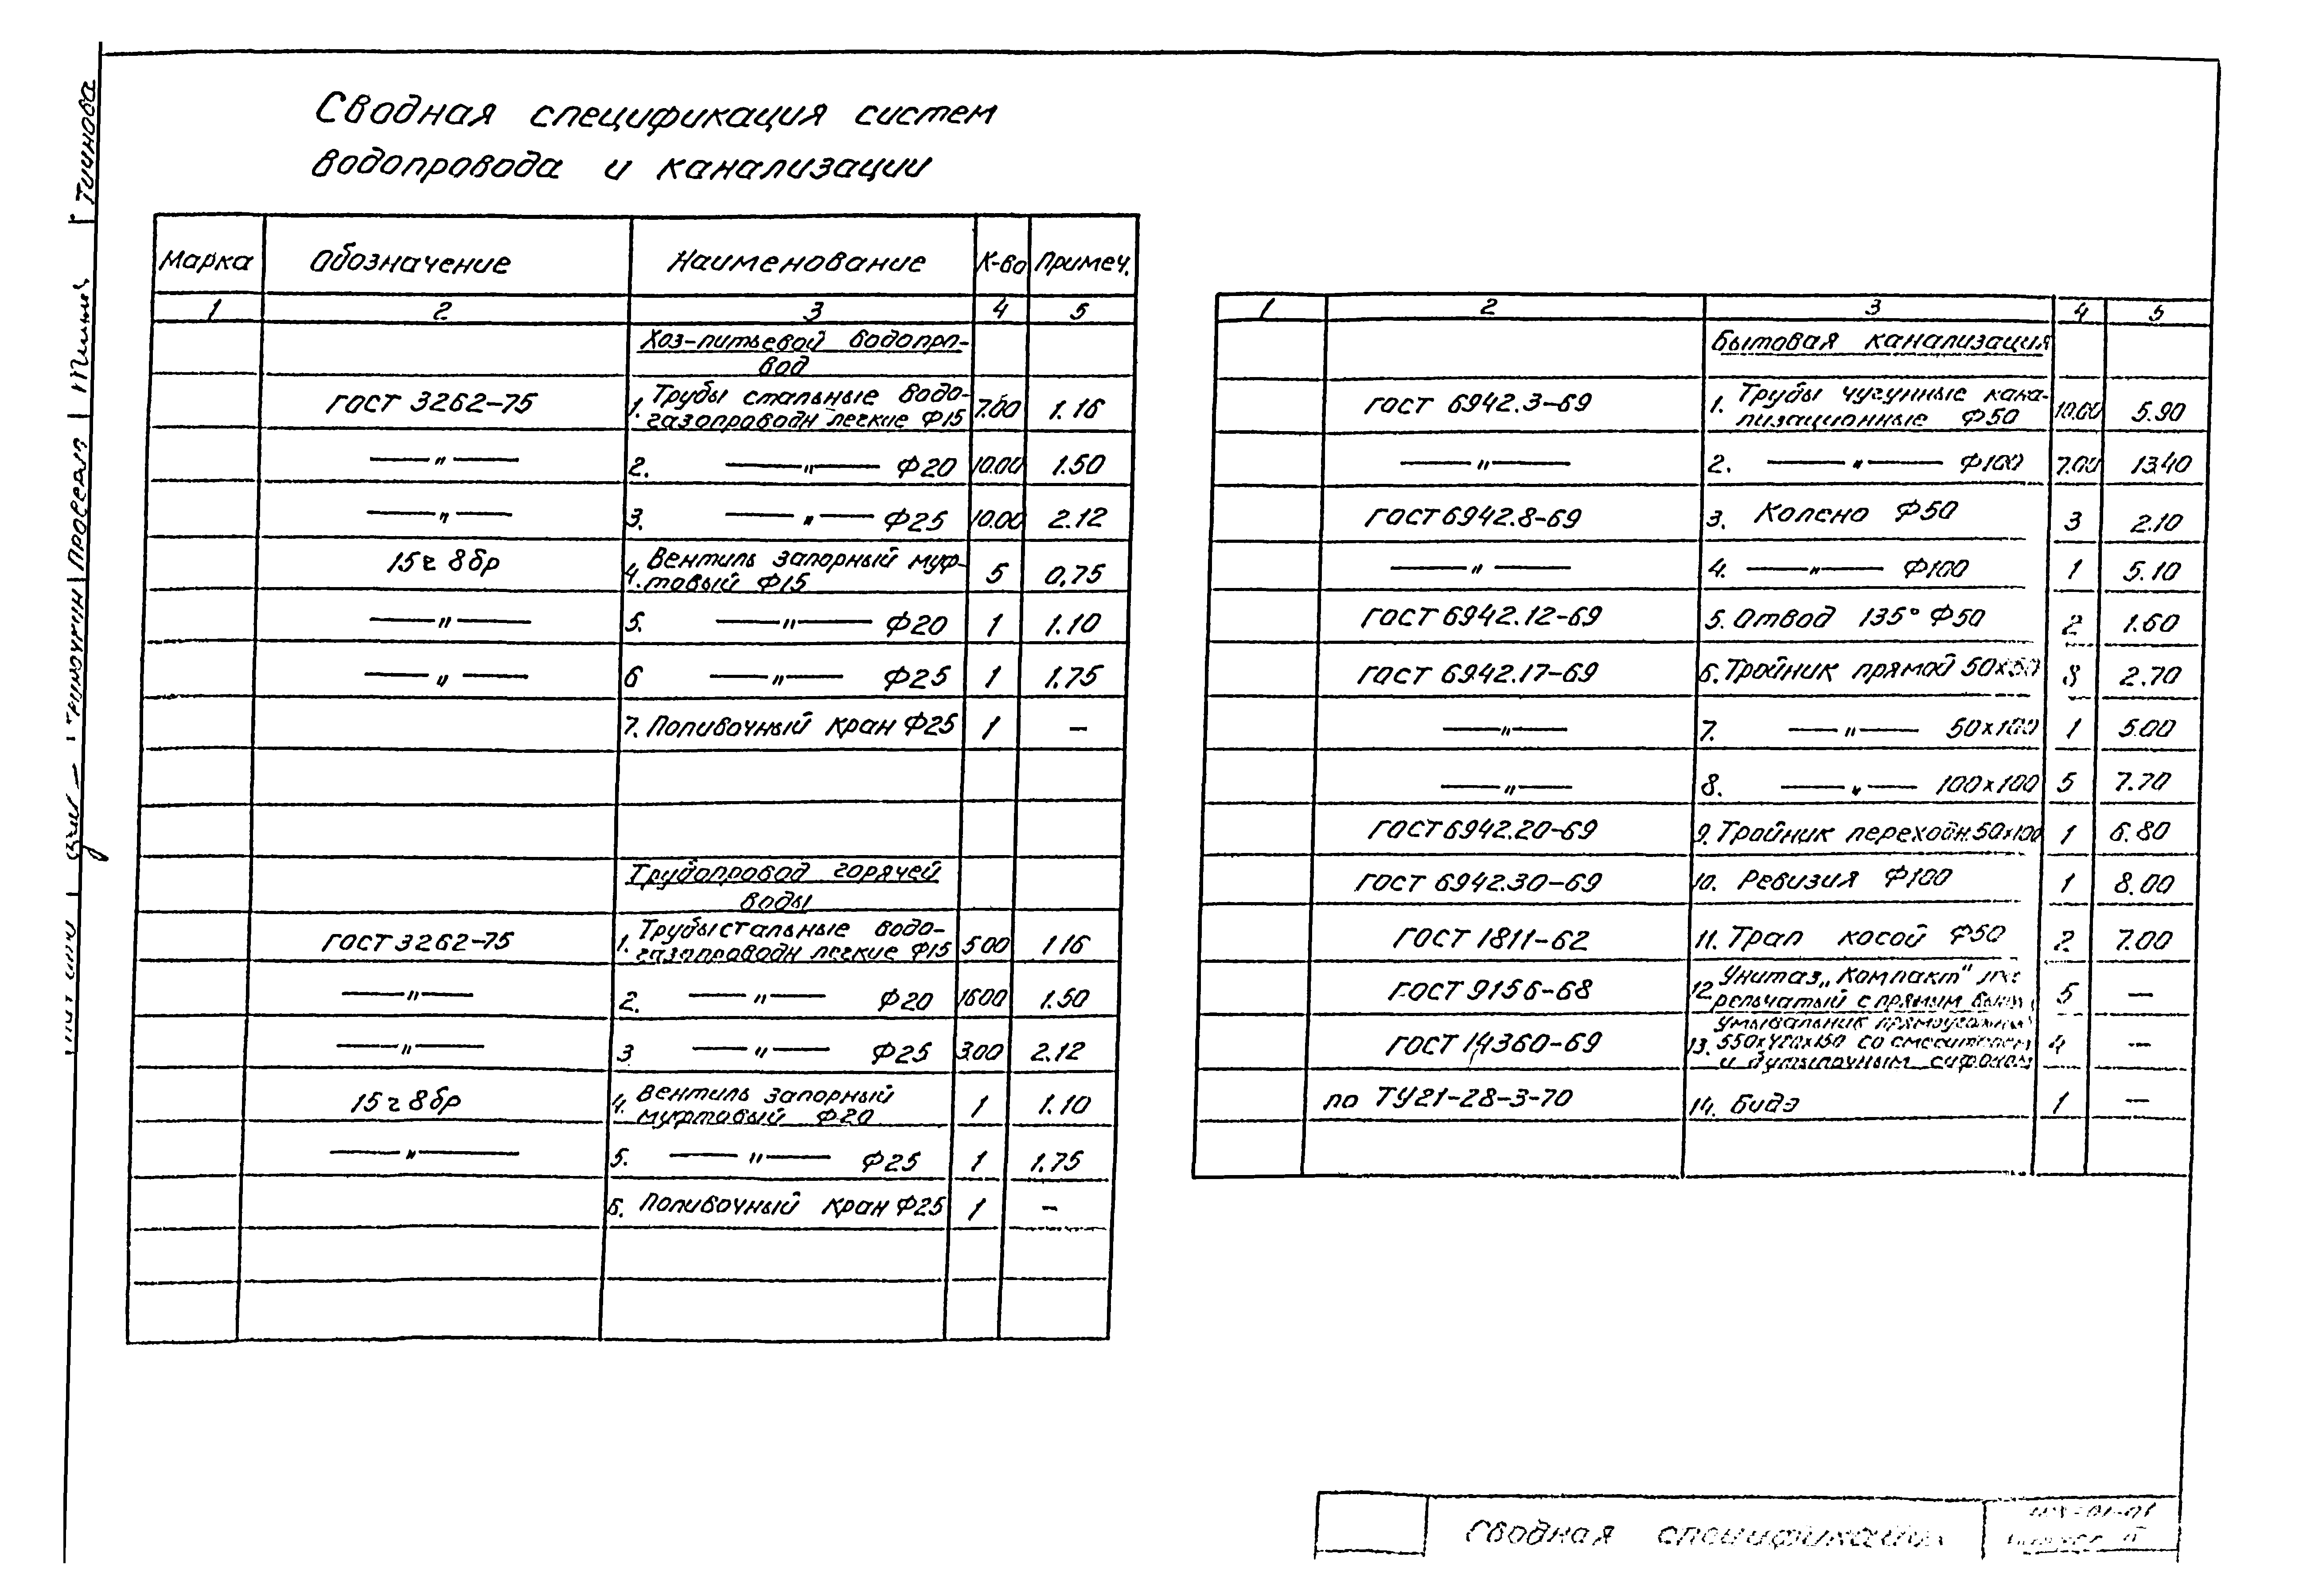 Сводная спецификация систем
водопровода и канализации
Марка Обозначение Наименование К-во Примеч.
1 2 3 4 5
Хоз-питьевой водопро-
вод
ГОСТ 3262-75 1. Трубы стальные водо-
газопроводн легкие Ф15 7.00 1.16
—〃— 2. —〃— Ф20 10.00 1.50
—〃— 3. —〃— Ф25 10.00 2.12
15ч 8бр 4. Вентиль запорный муф-
товый Ф15 5 0.75
—〃— 5. —〃— Ф20 1 1.10
—〃— 6 —〃— Ф25 1 1.75
7. Поливочный кран Ф25 1 —
Трубопровод горячей
воды
ГОСТ 3262-75 1. Трубы стальные водо-
газопроводн легкие Ф15 5.00 1.16
—〃— 2. —〃— Ф20 16.00 1.50
—〃— 3 —〃— Ф25 3.00 2.12
15ч 8бр 4. Вентиль запорный
муфтовый Ф20 1 1.10
—〃— 5. —〃— Ф25 1 1.75
6. Поливочный кран Ф25 1 —
1 2 3 4 5
Бытовая канализация
ГОСТ 6942.3-69 1. Трубы чугунные кана-
лизационные Ф50 10.00 5.90
—〃— 2. —〃— Ф100 7.00 13.40
ГОСТ 6942.8-69 3. Колено Ф50 3 2.10
—〃— 4. —〃— Ф100 1 5.10
ГОСТ 6942.12-69 5. Отвод 135° Ф50 2 1.60
ГОСТ 6942.17-69 6. Тройник прямой 50х50 8 2.70
—〃— 7. —〃— 50х100 1 5.00
—〃— 8. —〃— 100х100 5 7.70
ГОСТ 6942.20-69 9. Тройник переходн. 50х100 1 6.80
ГОСТ 6942.30-69 10. Ревизия Ф100 1 8.00
ГОСТ 1811-62 11. Трап косой Ф50 2 7.00
ГОСТ 9156-68 12. Унитаз „Компакт"
рельчатый с прямым 5 —
Умывальник
ГОСТ 14360-69 13. 550х420х150 со смесителем 4 —
и бутылочным сифоном
по ТУ21-28-3-70 14. Биде 1 —
Сводная спецификация
Проверил
Тичнова